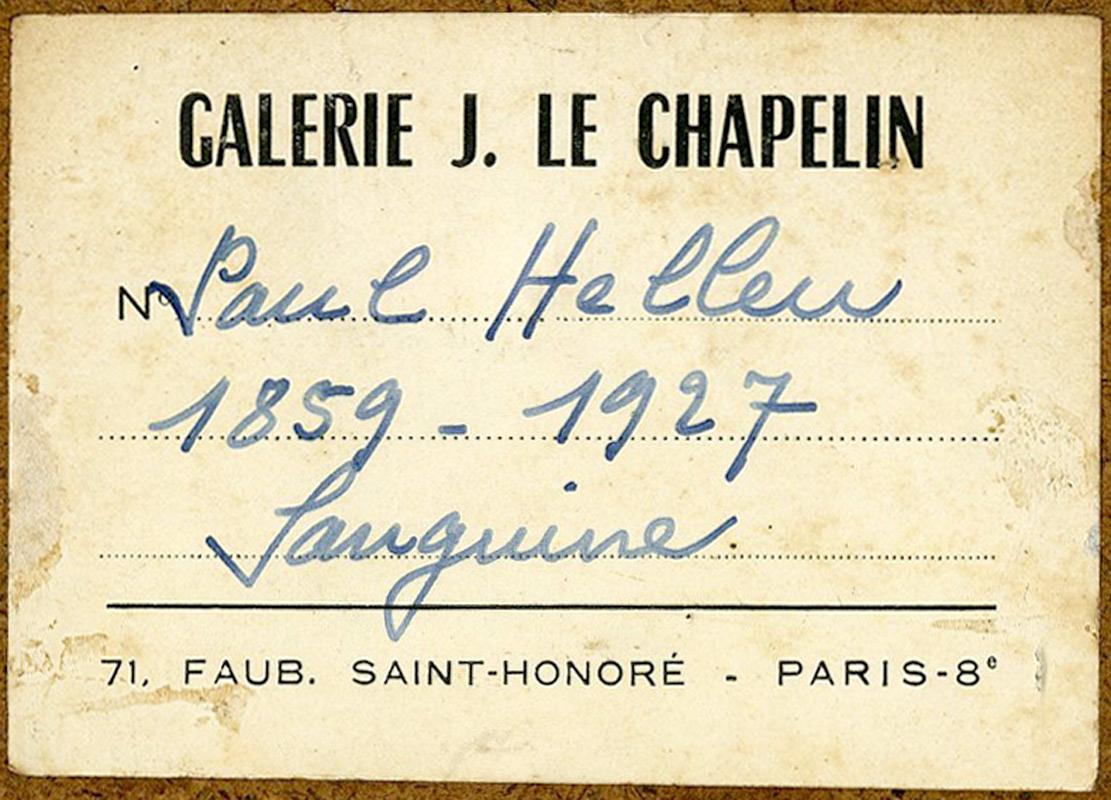 GALERIE J. LE CHAPELIN
N° Paul Helleu
1859 - 1927
Sanguine
71, FAUB. SAINT-HONORÉ - PARIS-8e